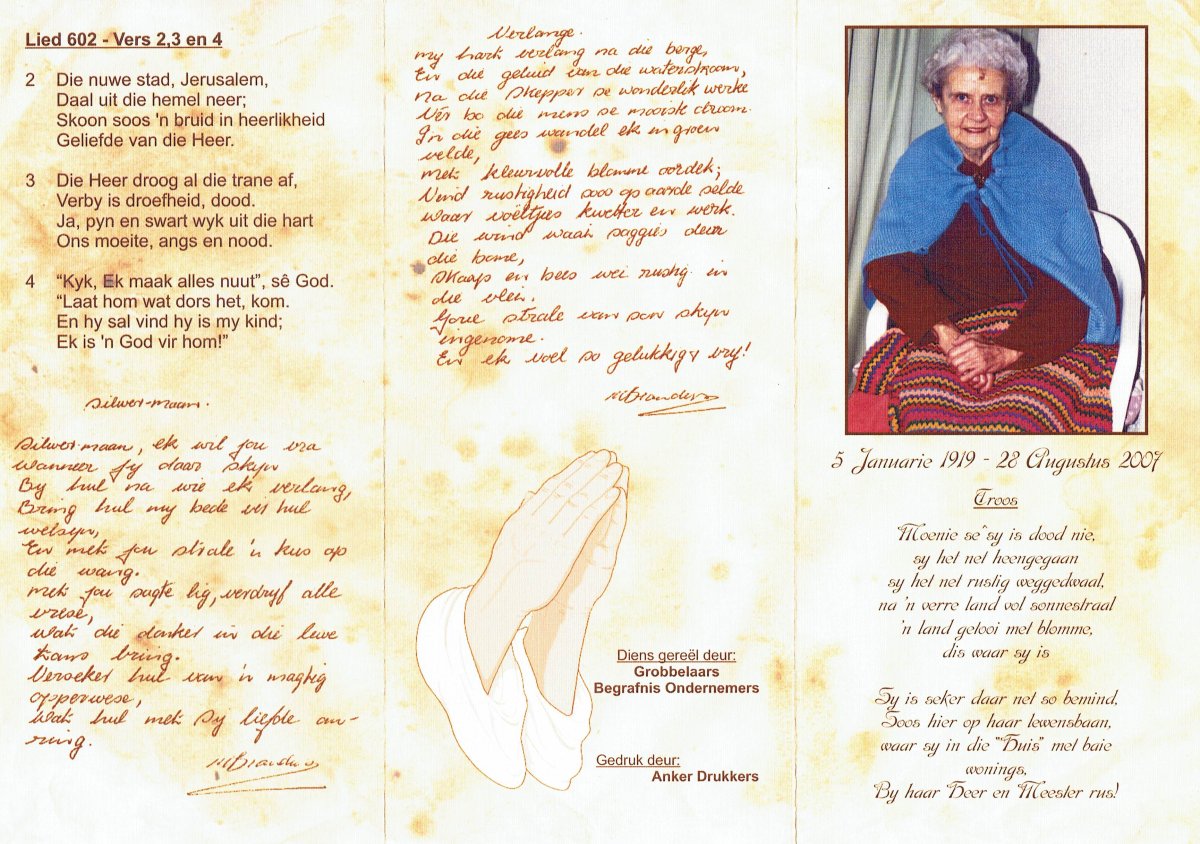 Lied 602 - Vers 2,3 en 4
2 Die nuwe stad, Jerusalem,
Daal uit die hemel neer;
Skoon soos 'n bruid in heerlikheid
Geliefde van die Heer.
3 Die Heer droog al die trane af,
Verby is droefheid, dood.
Ja, pyn en swart wyk uit die hart
Ons moeite, angs en nood.
4 “Kyk, Ek maak alles nuut”, sê God.
“Laat hom wat dors het, kom.
En hy sal vind hy is my kind;
Ek is 'n God vir hom!”
Silwer-maan.
Silwer-maan, ek wil jou vra
wanneer jy daar skyn
By hul na wie ek verlang,
Bring hul my bede vir hul
welsyn,
En met jou strale 'n kus op
die wang.
met jou sagte lig, verdryf alle
vrese,
wat die donker in die lewe
kans bring.
Verseker hul van 'n magtig
opperwese,
wat hul met Sy liefde om-
ring.
Verlange.
my hart verlang na die berge,
En die geluid van die waterstroom,
Na die Skepper se wonderlik werke
Vêr bo die mens se mooiste droom.
In die gees wandel ek in groen
velde,
met kleurvolle blomme oordek;
Vind rustigheid soos op aarde selde
waar voëltjies kwetter en werk.
Die wind waai saggies deur
die bome,
Skaap en bees wei rustig in
die vlei.
Goue strale van son skyn
ingenome.
En ek voel so gelukkig, vry!
Diens gereël deur:
Grobbelaars
Begrafnis Ondernemers
Gedruk deur:
Anker Drukkers
5 Januarie 1919 - 28 Augustus 2007
Troos
Moenie se^sy is dood nie,
sy het net heengegaan
sy het net rustig weggedwaal,
na 'n verre land vol sonnestraal
'n land getooi met blomme,
dis waar sy is
Sy is seker daar net so bemind,
Soos hier op haar lewensbaan,
waar sy in die "Huis" met baie
wonings,
By haar Heer en Meester rus!